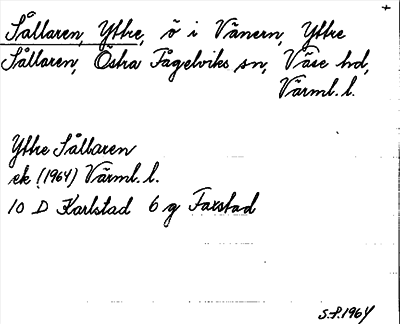 Sållaren, Yttre, ö i Vänern, Yttre
Sållaren, Östra Fågelviks sn, Väse hd,
Värml. l.
Yttre Sållaren
ek (1964) Värml. l.
10 D Karlstad 6 g Faxstad
S.P. 1964